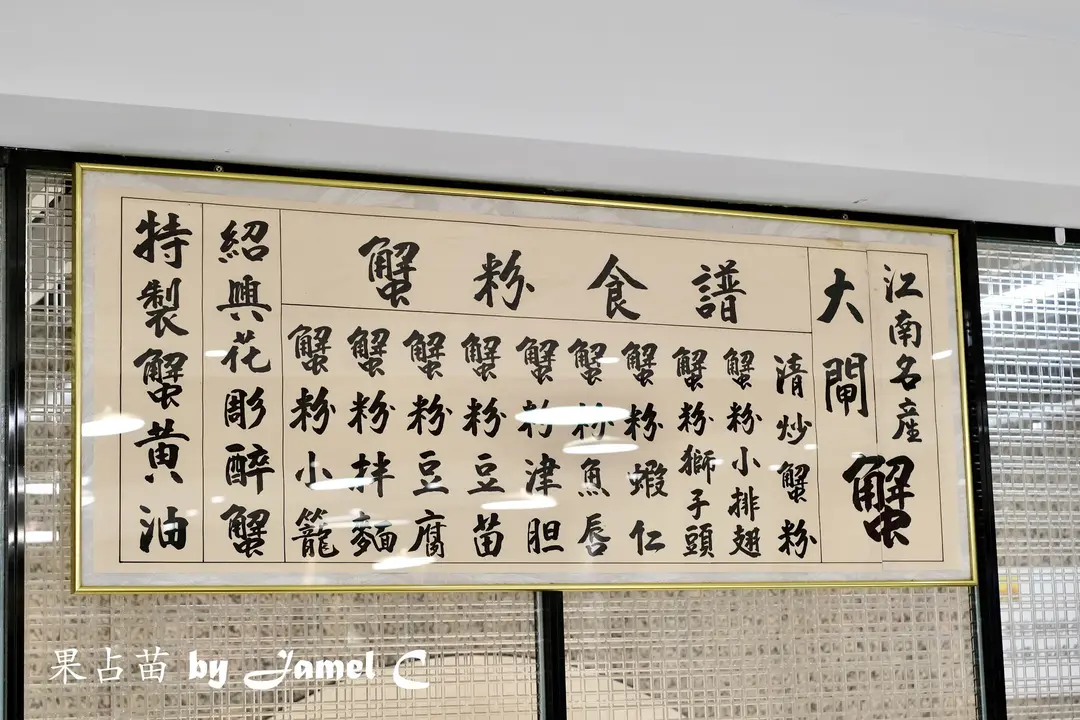 江南名產
大閘蟹
蟹粉食譜
清炒蟹粉
蟹粉小排翅
蟹粉獅子頭
蟹粉蝦仁
蟹粉魚唇
蟹粉津胆
蟹粉豆苗
蟹粉豆腐
蟹粉拌麵
蟹粉小籠
紹興花彫醉蟹
特製蟹黃油
果占苗 by Jamel C